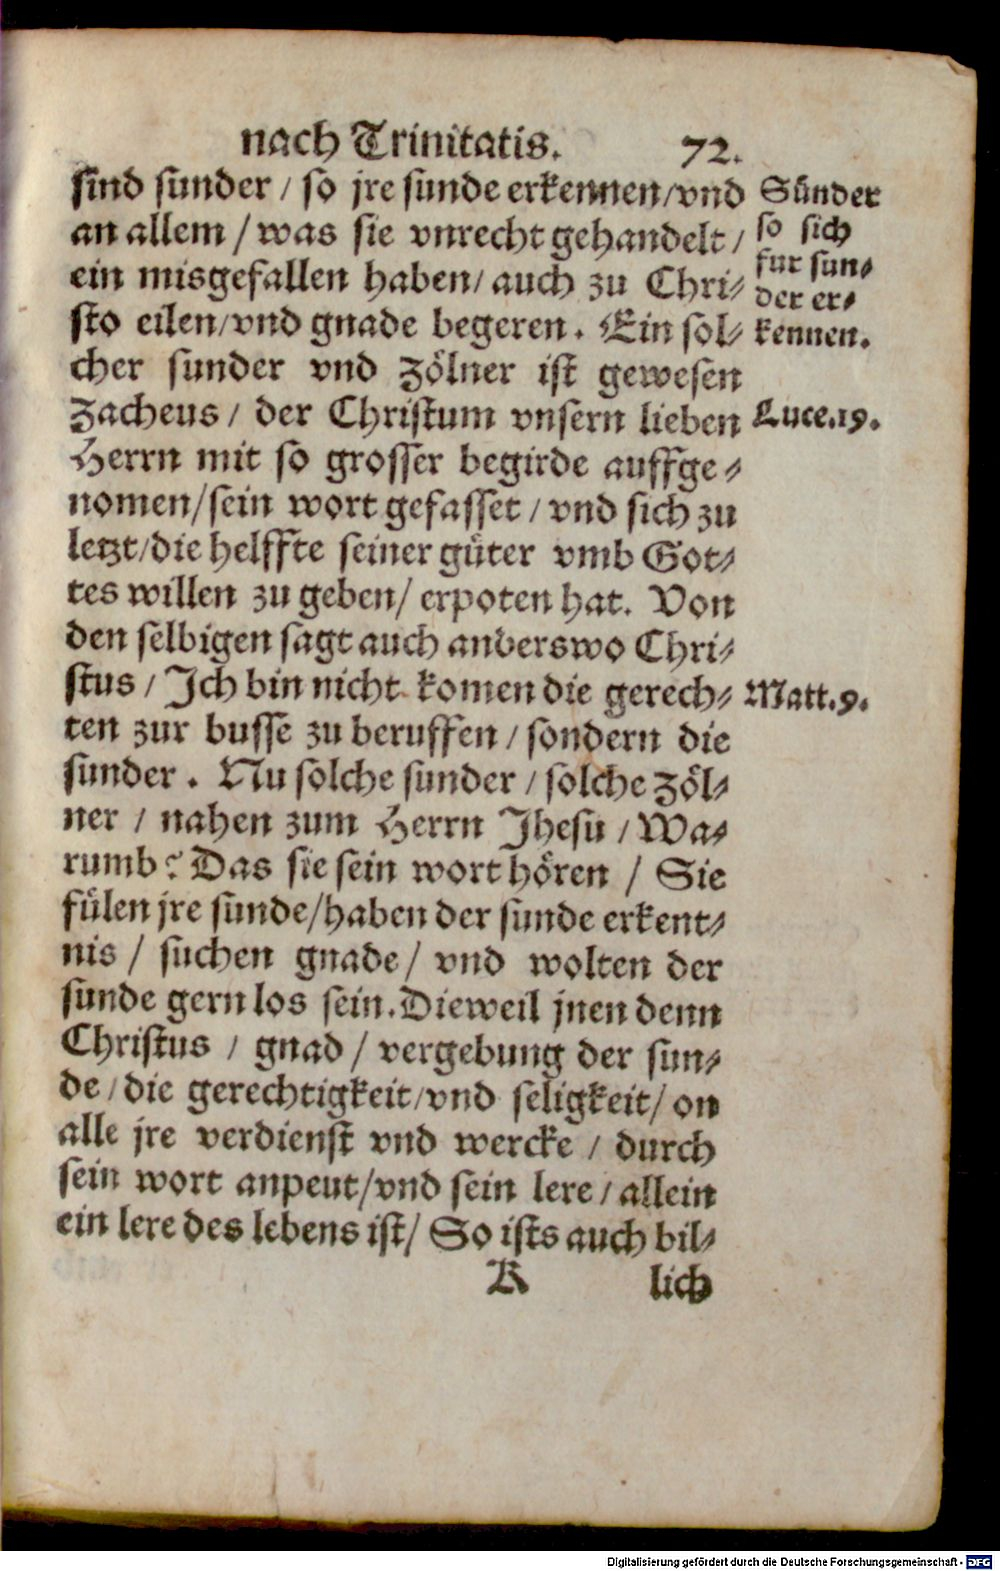 nach Trinitatis. 72.
sind sunder / so jre sunde erkennen / vnd
an allem / was sie vnrecht gehandelt /
ein misgefallen haben / auch zu Chri-
sto eilen / vnd gnade begeren. Ein sol-
cher sunder vnd Zölner ist gewesen
Zacheus / der Christum vnsern lieben
Herrn mit so grosser begirde auffge-
nomen / sein wort gefasset / vnd sich zu
letzt / die helffte seiner güter vmb Got-
tes willen zu geben / erpoten hat. Von
den selbigen sagt auch anderswo Chri-
stus / Jch bin nicht komen die gerech-
ten zur busse zu beruffen / sondern die
sunder. Nu solche sunder / solche Zöl-
ner / nahen zum Herrn Jhesu / Wa-
rumb? Das sie sein wort hören / Sie
fülen jre sunde / haben der sunde erkent-
nis / suchen gnade / vnd wolten der
sunde gern los sein. Dieweil jnen denn
Christus / gnad / vergebung der sun-
de / die gerechtigkeit / vnd seligkeit / on
alle jre verdienst vnd wercke / durch
sein wort anpeut / vnd sein lere / allein
ein lere des lebens ist / So ists auch bil-
K lich
Sünder
so sich
fur sun-
der er-
kennen.
Luce.19.
Matt.9.
Digitalisierung gefördert durch die Deutsche Forschungsgemeinschaft - DFG